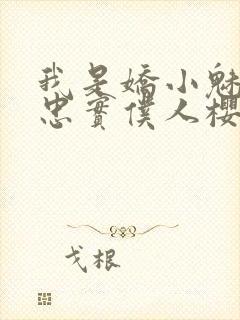 我是嬌小魅
忠實僕人櫻
戈根